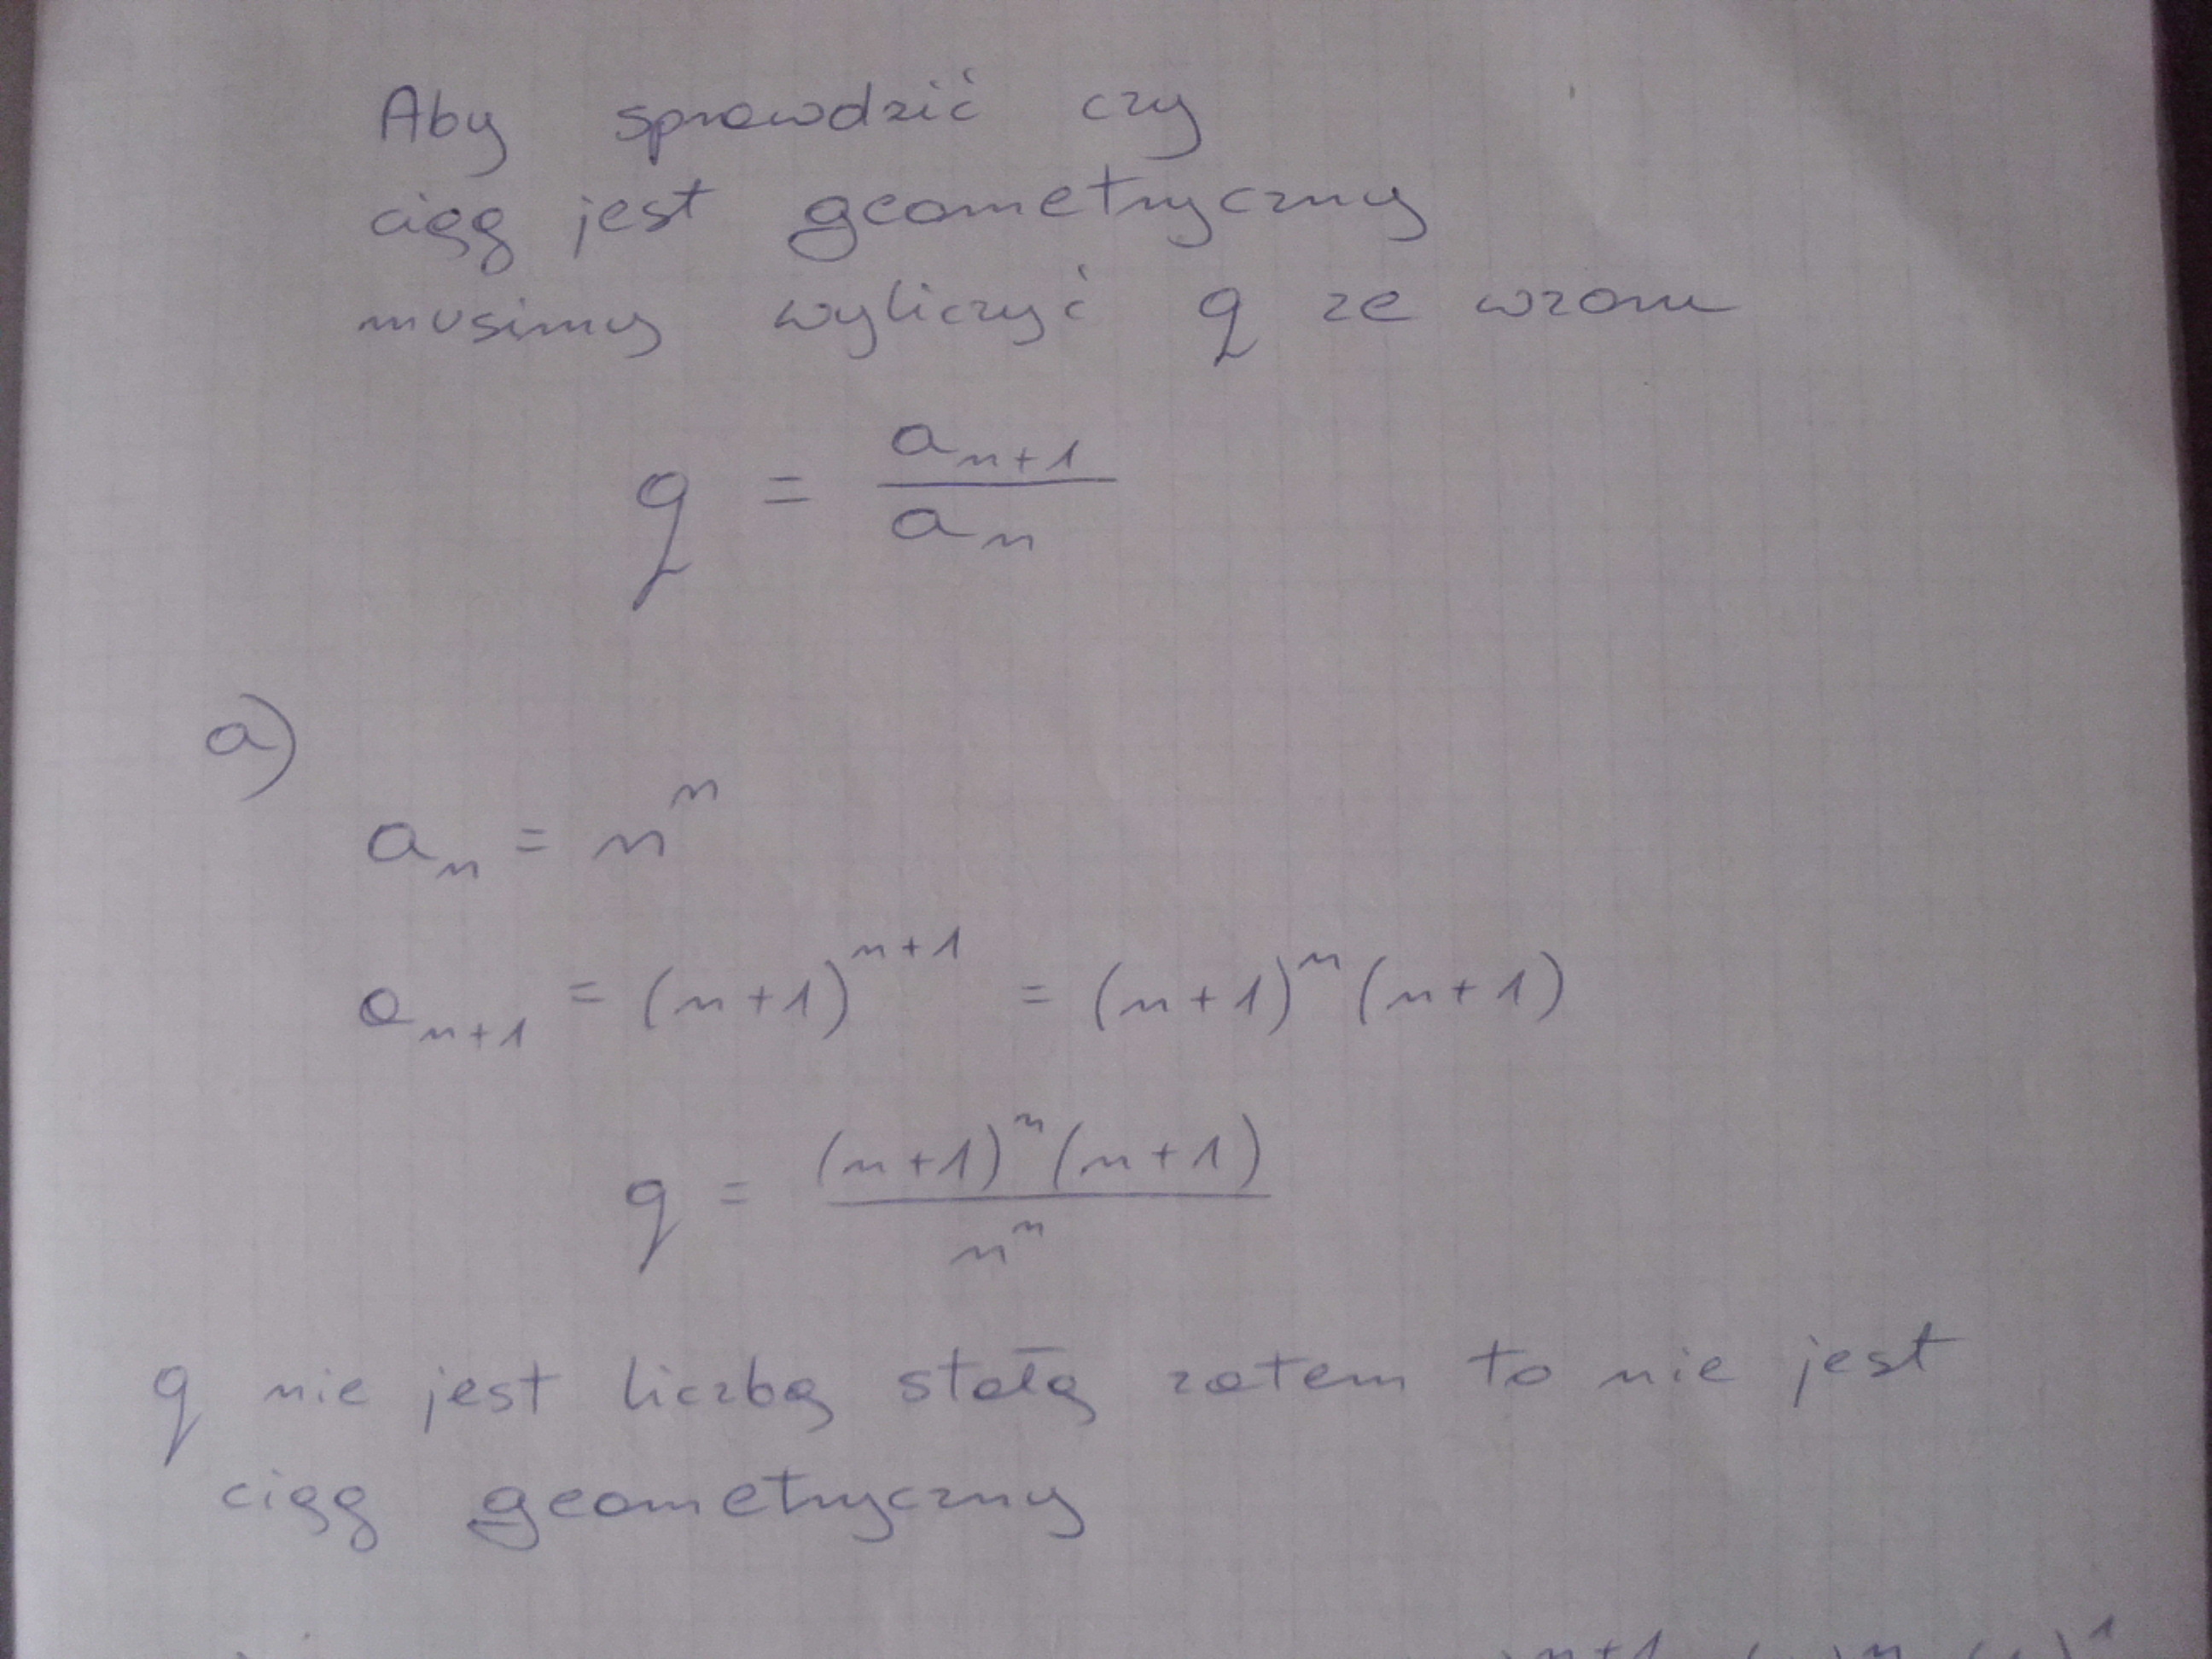 Aby sprawdzić czy
ciąg jest geometryczny
musimy wyliczyć q ze wzoru
q = a_{n+1} / a_n
a)
a_n = n^n
a_{n+1} = (n+1)^{n+1} = (n+1)^n (n+1)
q = (n+1)^n (n+1) / n^n
q nie jest liczbą stałą zatem to nie jest
ciąg geometryczny